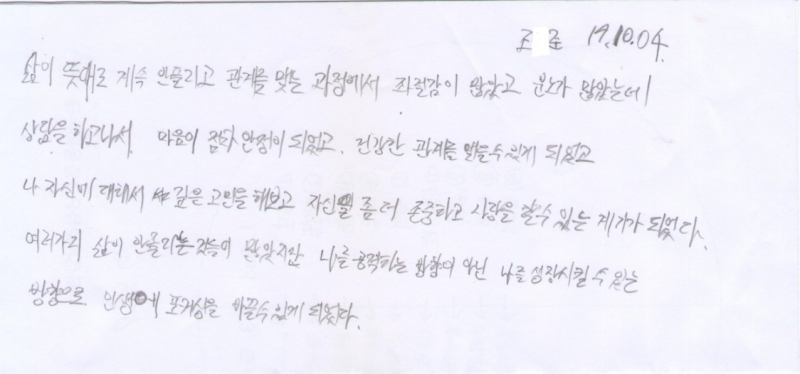 조 준 19.10.04.
삶이 뜻대로 계속 안풀리고 관계를 맺는 과정에서 좌절감이 많았고 분노가 많았는데
상담을 하고나서 마음이 점차 안정이 되었고, 건강한 관계를 만들수있게 되었고
나 자신에 대해서 깊은 고민을 해보고 자신을 좀 더 존중하고 사랑을 할수 있는 계기가 되었다.
여러가지 삶이 안풀리는 것들이 많았지만 나를 공격하는 방향이 아닌 나를 성장시킬 수 있는
방향으로 인생에 포커싱을 바꿀수있게 되었다.